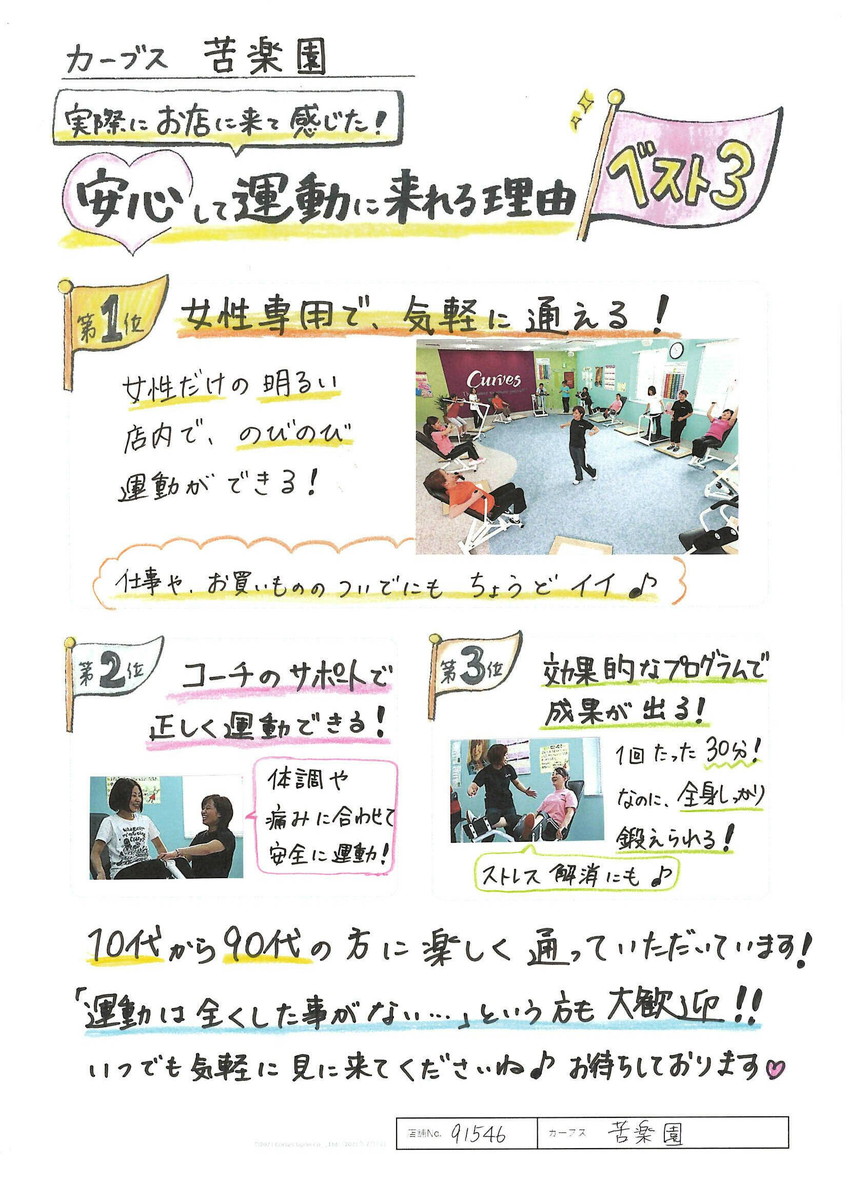 カーブス 苦楽園
実際にお店に来て感じた!
安心して運動に来れる理由
ベスト3
第1位
女性専用で、気軽に通える!
女性だけの明るい
店内で、のびのび
運動ができる!
Curves
仕事や、お買いもののついでにも ちょうどイイ♪
第2位
コーチのサポートで
正しく運動できる!
体調や
痛みに合わせて
安全に運動!
第3位
効果的なプログラムで
成果が出る!
1回たった30分!
なのに、全身しっかり
鍛えられる!
ストレス解消にも♪
10代から90代の方に楽しく通っていただいています!
「運動は全くした事がない…」という方も大歓迎!!
いつでも気軽に見に来てくださいね♪お待ちしております♡
店舗No. 91546
カーブス 苦楽園